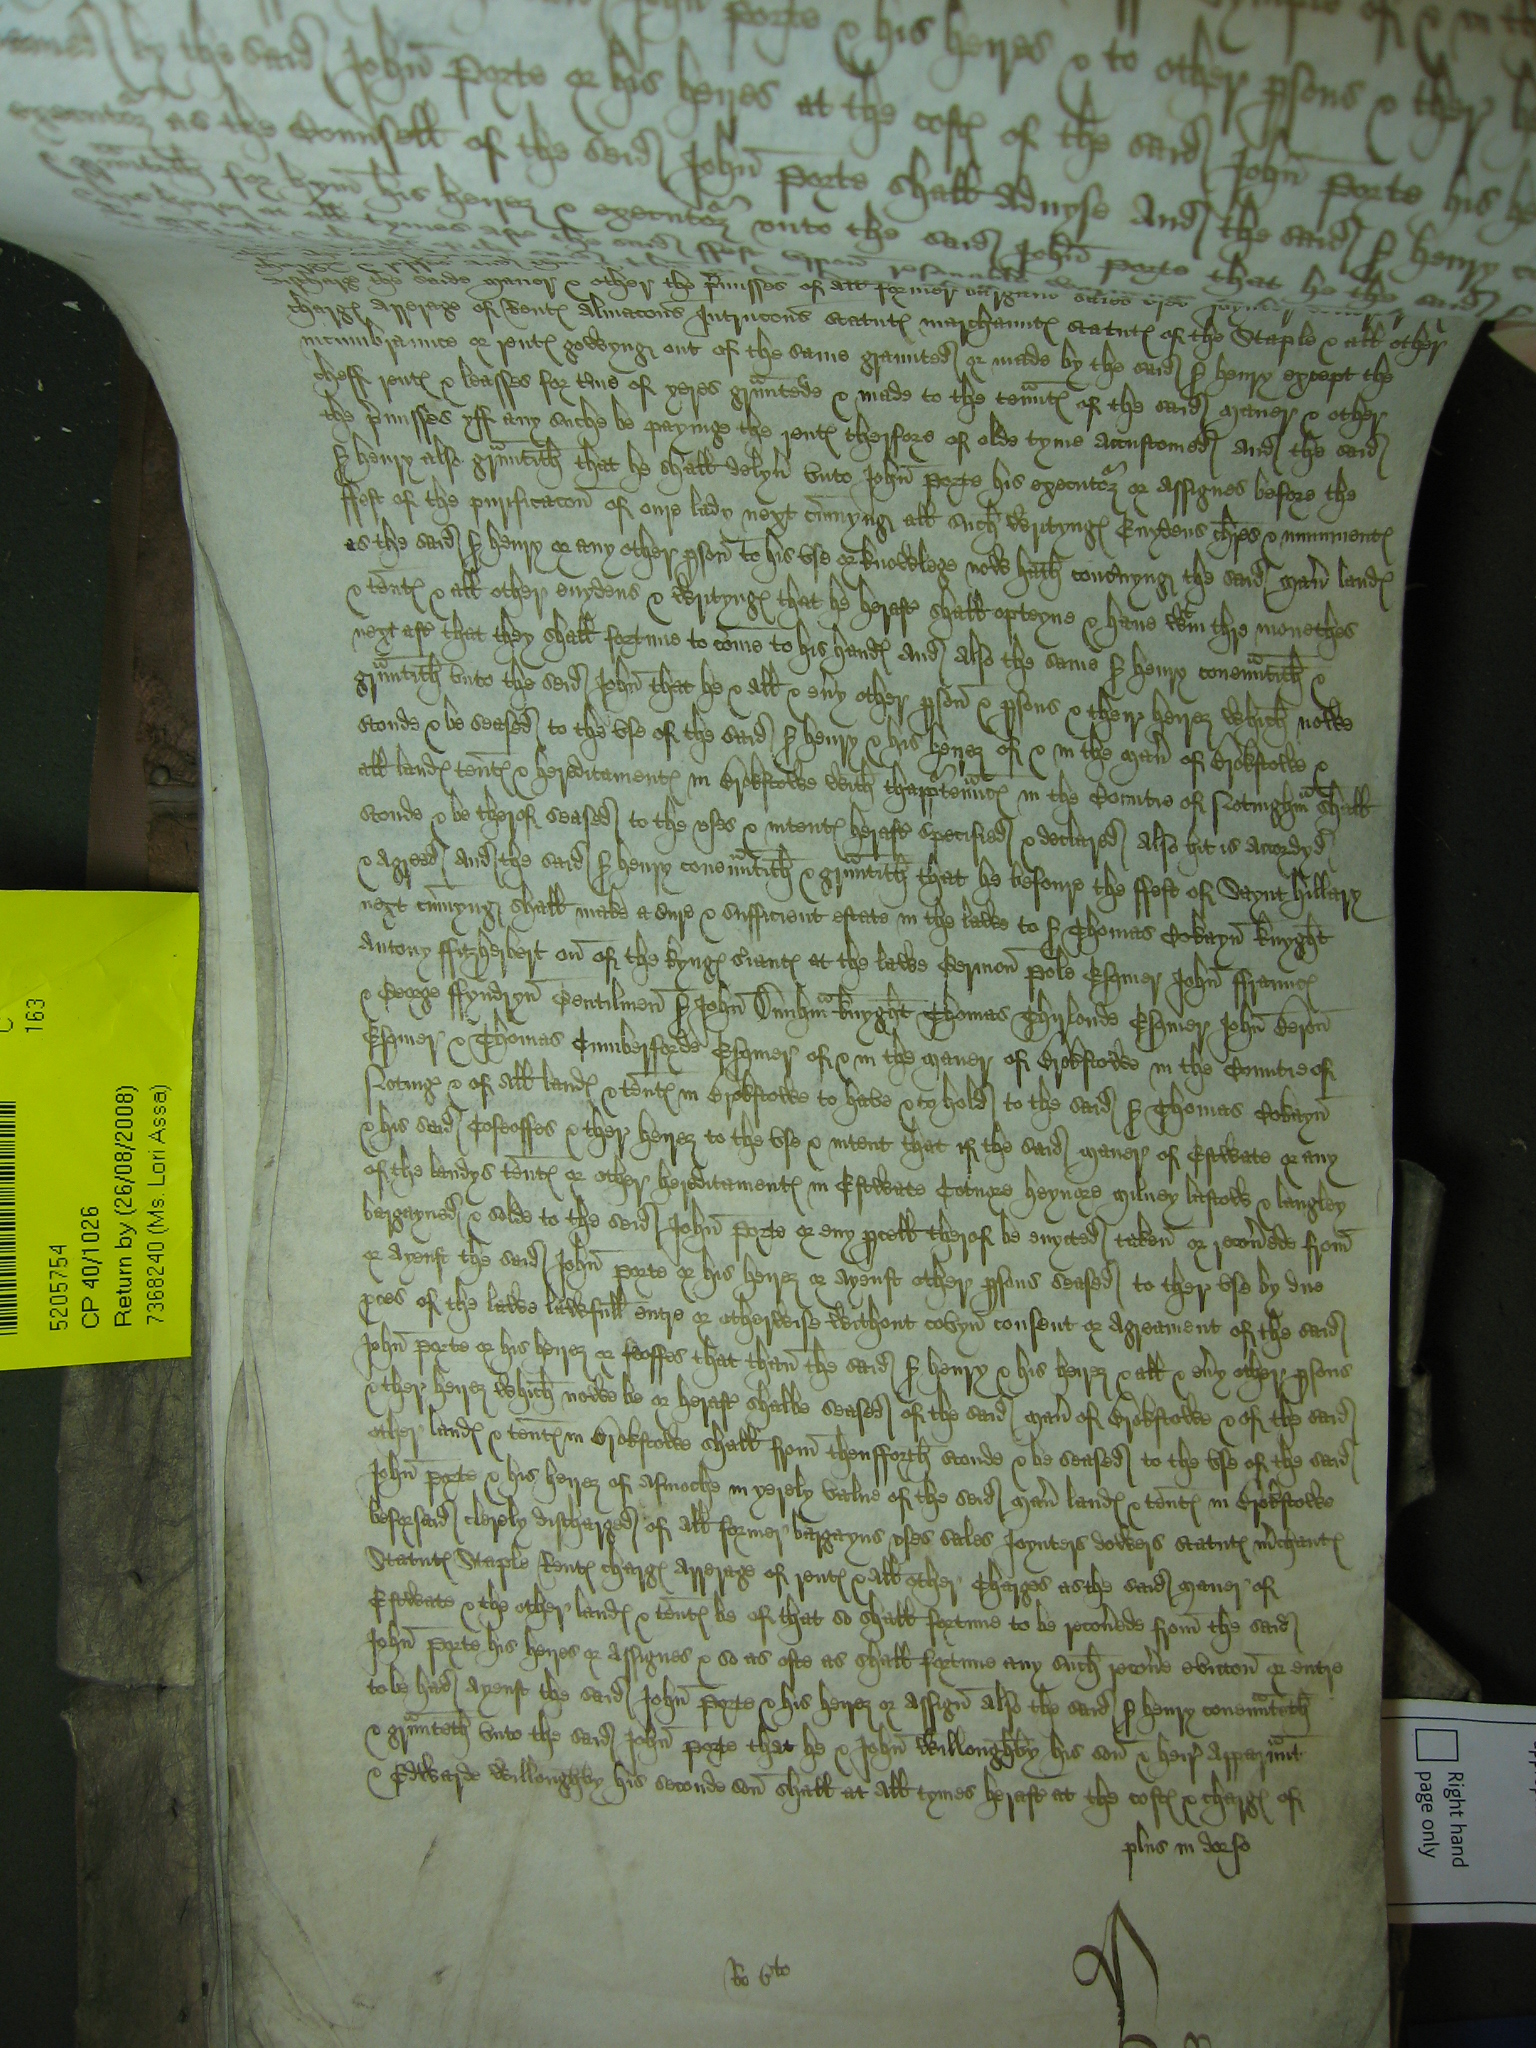 John Porte & his heires & to other psons & ther
by the said John Porte or his heires at the cost of the said John Porte his
executor as the Counsell of the seid John Porte shall aduyse And the said S henry
grauntith for hym his heires & executor vnto the said John Porte that he the said
at all tymes aft the said ffest
discharg the saide maner & other the pmisses of all former bargains sales
charg Arrerage of Rent Almacons Intrucons statut marchaunt statut of the Staple & all other
incumbraunce or rent gowyng out of the same graunted or made by the said S henry except the
cheff rent & leasses for tme of yeres grauntede & made to the tenaunt of the said maner & other
the pmisses yff any suche be payinge the rent therfore of olde tyme accustomed And the said
S henry also grauntith that he shall delyu vnto John Porte his executor or assignes before the
ffest of the purificacon of oure lady next cumyng all such writyng Euydens chres & munument
as the said S henry or any other pson to his vse or knowlege now hath concnyng the said man land
& tent & all other euydens & writyng that he heraft shall opteyne & haue wtin thre monethes
next aft that they shall fortune to come to his hand And Also the same S henry couenauntith &
grauntith vnto the seid John that he & all & eny other pson & psons & ther heires which nowe
stonde & be seased to the vse of the said S henry & his heires of & in the man of Brokstowe &
all land tent & hereditament in Brokstowe with thapptenaunc in the Countie of Notinghm shall
stonde & be therof seased to the vses & intent heraft specified & declared Also hit is Acordyd
& Agreed And the said S henry couenauntith & grauntith that he before the ffest of Saynt hillary
next cumyng shall make a sure & sufficient estate in the lawe to S Thomas Cokayn knyght
Antony ffitzherbert on of the kyng siaunt at the lawe Germon Pole Esquier John ffraunces
& George ffyndryn Gentilmen S John knyght Thomas Thurlonde Esquier John Beron
Esquier & Thomas Cumberforde Esquier of & in the maner of Brokstowe in the Countie of
Noting & of All land & tent in Brokstowe to have & to hold to the said S Thomas Cokayn
& his said Cofeoffes & ther heires to the vse & intent that if the said maner of Estwate or any
of the landys tent or other hereditament in Estwate Cotnore heynore milney lostow & langley
bergayned & solde to the seid John Porte or eny pcell therof be euycted taken or recouede from
or Ayenst the said John Porte or his heires or ayenst other psons seased to ther vse by due
pces of the lawe lawfull entre or otherwise without covyn consent or Agreament of the said
John Porte or his heires or feoffes that than the said S henry & his heires & all & euy other psons
& ther heires which nowe be or heraft shalbe seased of the said man of Brokstowe & of the said
other land & tent in Brokstowe shall from thensfforth stonde & be seased to the vse of the said
John Porte & his heires of Asmoche in yerely value of the seid man land & tent in Brokstowe
beforsaid clerely discharged of all former bargayns vses sales Joynters dowers statut mchant
Statut Staple Rent charg Arrerage of rent & all other Charges as the said maner of
Estwate & the other land & tent be of that so shall fortune to be recouede from the said
John Porte his heires or Assignes & so as ofte as shall fortune any such recoue euiccon or entre
to be had Ayenst the said John Porte & his heires or assign Also the said S henry couenauntith
& grauntith vnto the said John Porte that he & John Willoughby his son & heire Apparaunt
& Edwarde Willoughby his seconde son shall at All tymes heraft at the cost & charg of
plus in dorso
Ro vto
163
5205754
CP 40/1026
Return by (26/08/2008)
7368240 (Ms. Lori Assa)
Right hand
page only